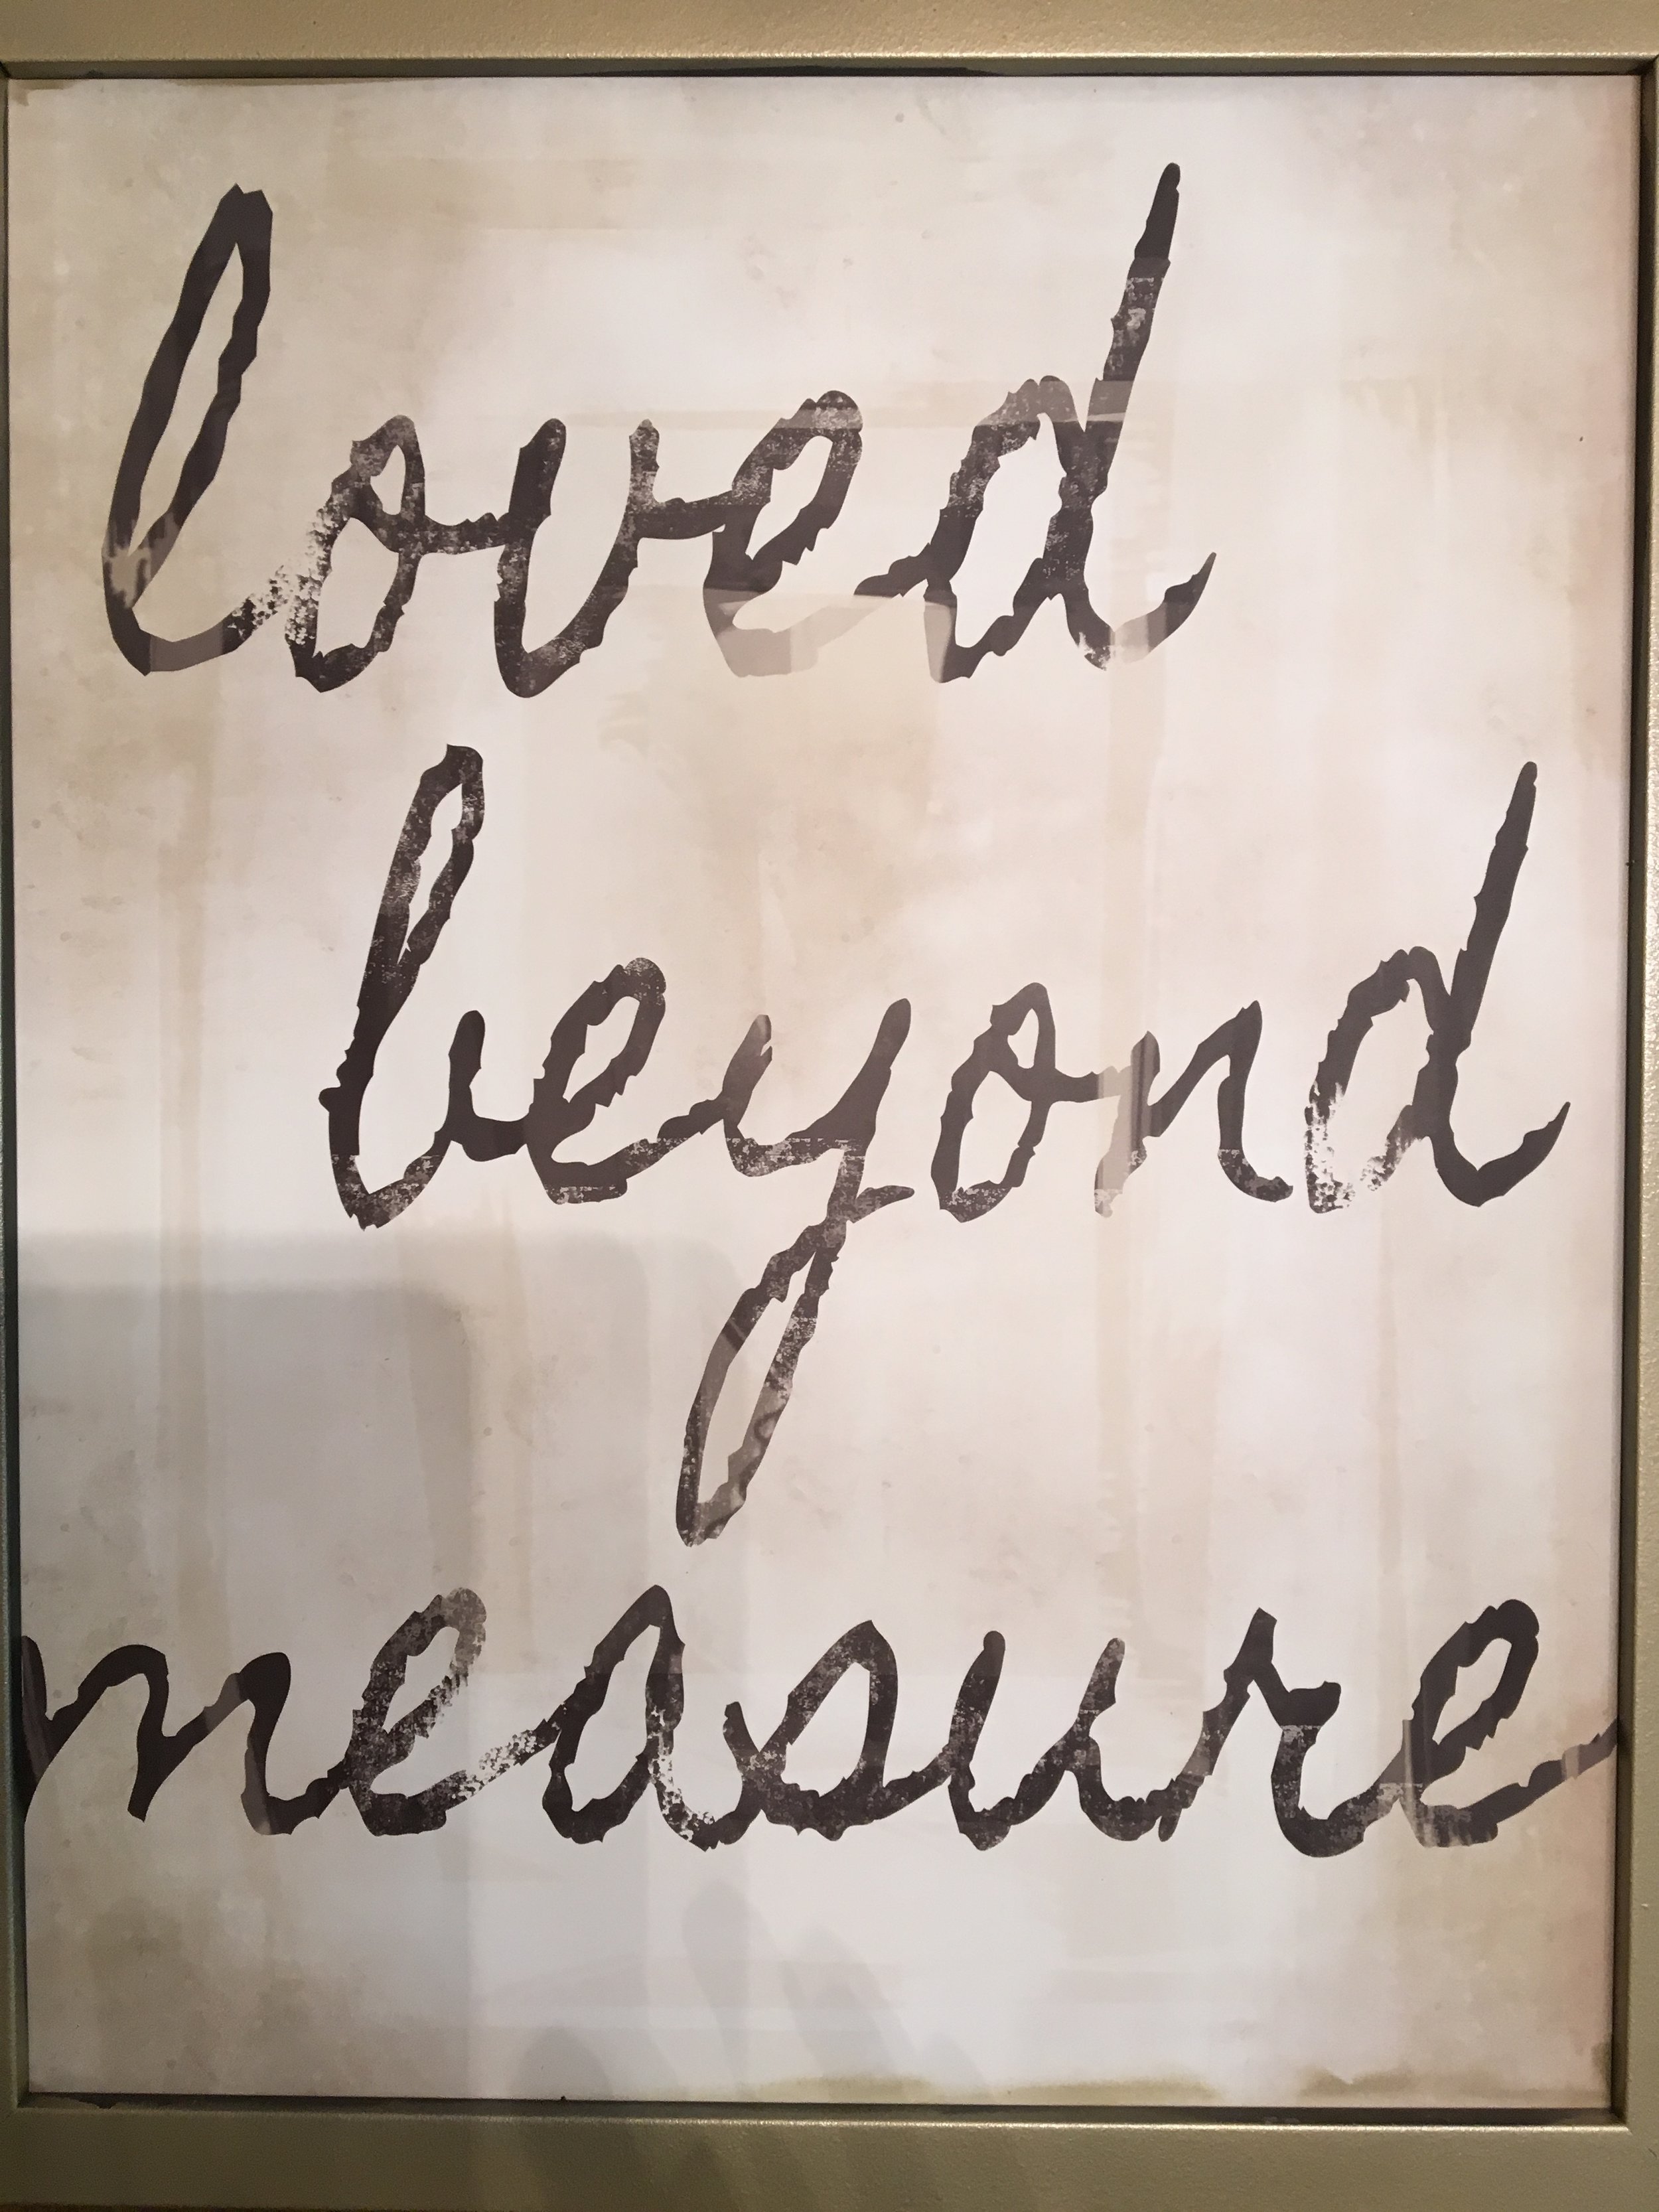 loved
beyond
measure